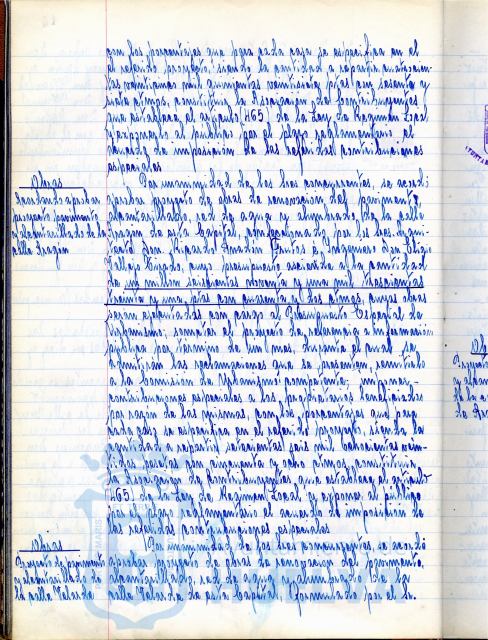 con los porcentajes que para cada caso se especifica en el
referido proyecto, siendo la cantidad a repartir cuatrocien-
tas veintiunas mil quinientas veintisiete ptas con sesenta y
siete ctmos, constituir la Asociación de Contribuyentes
que establece el artículo 465 de la Ley de Regimen Local
y exponer al público por el plazo reglamentario el
acuerdo de imposición de las referidas contribuciones
especiales
Obras
proyecto pavimento
y alcantarillado de la
calle Aragón
Por unanimidad de los tres concurrentes, se acordó:
aprobar proyecto de obras de renovación del pavimento,
alcantarillado, red de agua y alumbrado de la calle
Aragón de esta Capital, confeccionado por los Sres. Arqui-
tecto Don Ricardo Santos e Ingeniero Don Eligio
Vallejo, cuyo presupuesto asciende a la cantidad
de un millon seiscientas noventa y una mil trescientas
treinta y una ptas con cuarenta y dos ctmos, cuyas obras
seran ejecutadas con cargo al Presupuesto Especial de
Urbanismo; someter el proyecto de referencia a información
pública por término de un mes, durante el cual se
admitiran las reclamaciones que se presenten; remitirlo
a la Comisión de Urbanismo competente; imponer
contribuciones especiales a los propietarios beneficiados
por razón de las mismas, con los porcentajes que para
cada caso se especifica en el referido proyecto, siendo la
cantidad a repartir setecientas seis mil ochocientas vein-
tidos pesetas con cincuenta y ocho ctmos, constituir
la Asociación de Contribuyentes que establece el artículo
465 de la Ley de Regimen Local y exponer al público
por el plazo reglamentario el acuerdo de imposición de
las referidas contribuciones especiales
Obras
Proyecto de pavimento
y alcantarillado de
la calle Velarde
Por unanimidad de los tres concurrentes, se acordó
aprobar proyecto de obras de renovación del pavimento,
alcantarillado, red de agua y alumbrado de la
calle Velarde de esta Capital, formulado por el Sr.